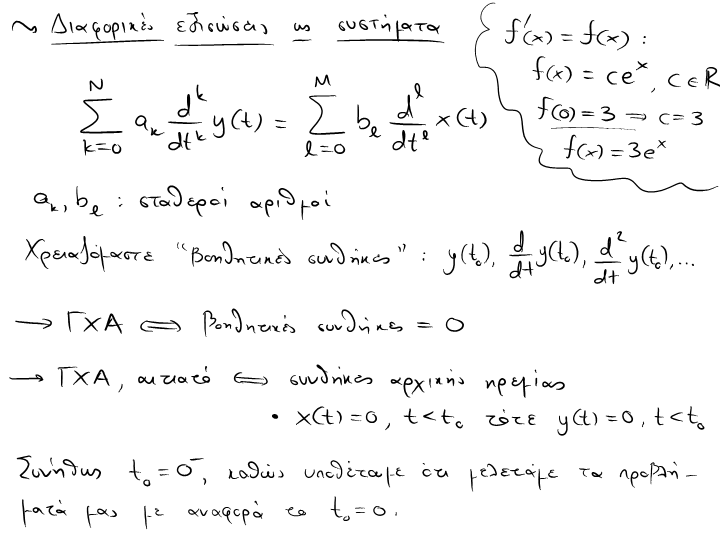 ~ Διαφορικές εξισώσεις ως συστήματα
f'(x) = f(x) :
f(x) = ce^x, c ∈ ℝ
f(0) = 3 ⇒ c = 3
f(x) = 3e^x
\sum_{k=0}^{N} a_k \frac{d^k}{dt^k} y(t) = \sum_{l=0}^{M} b_l \frac{d^l}{dt^l} x(t)
a_k, b_l : σταθεροί αριθμοί
Χρειαζόμαστε "βοηθητικές συνθήκες" : y(t_0), \frac{d}{dt} y(t_0), \frac{d^2}{dt} y(t_0), ...
→ ΓΧΑ ⟺ βοηθητικές συνθήκες = 0
→ ΓΧΑ, αιτιατό ⟺ συνθήκες αρχικής ηρεμίας
• x(t) = 0, t < t_0 τότε y(t) = 0, t < t_0
Συνήθως t_0 = 0^-, καθώς υποθέταμε ότι μελετάμε τα προβλή-
ματά μας με αναφορά το t_0 = 0.